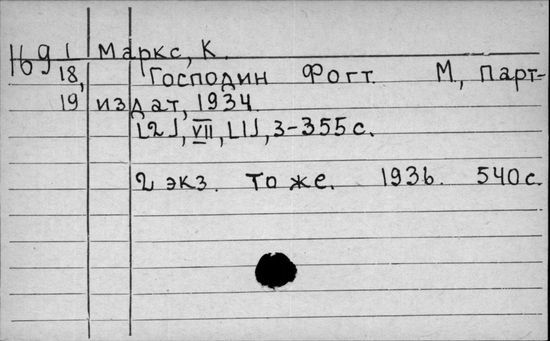 1691 Маркс, К.
18, Господин Фогт. М., Парт-
19 издат, 1934.
[2], VII, [1], 3-355 с.
2 экз. То же. 1936. 540 с.